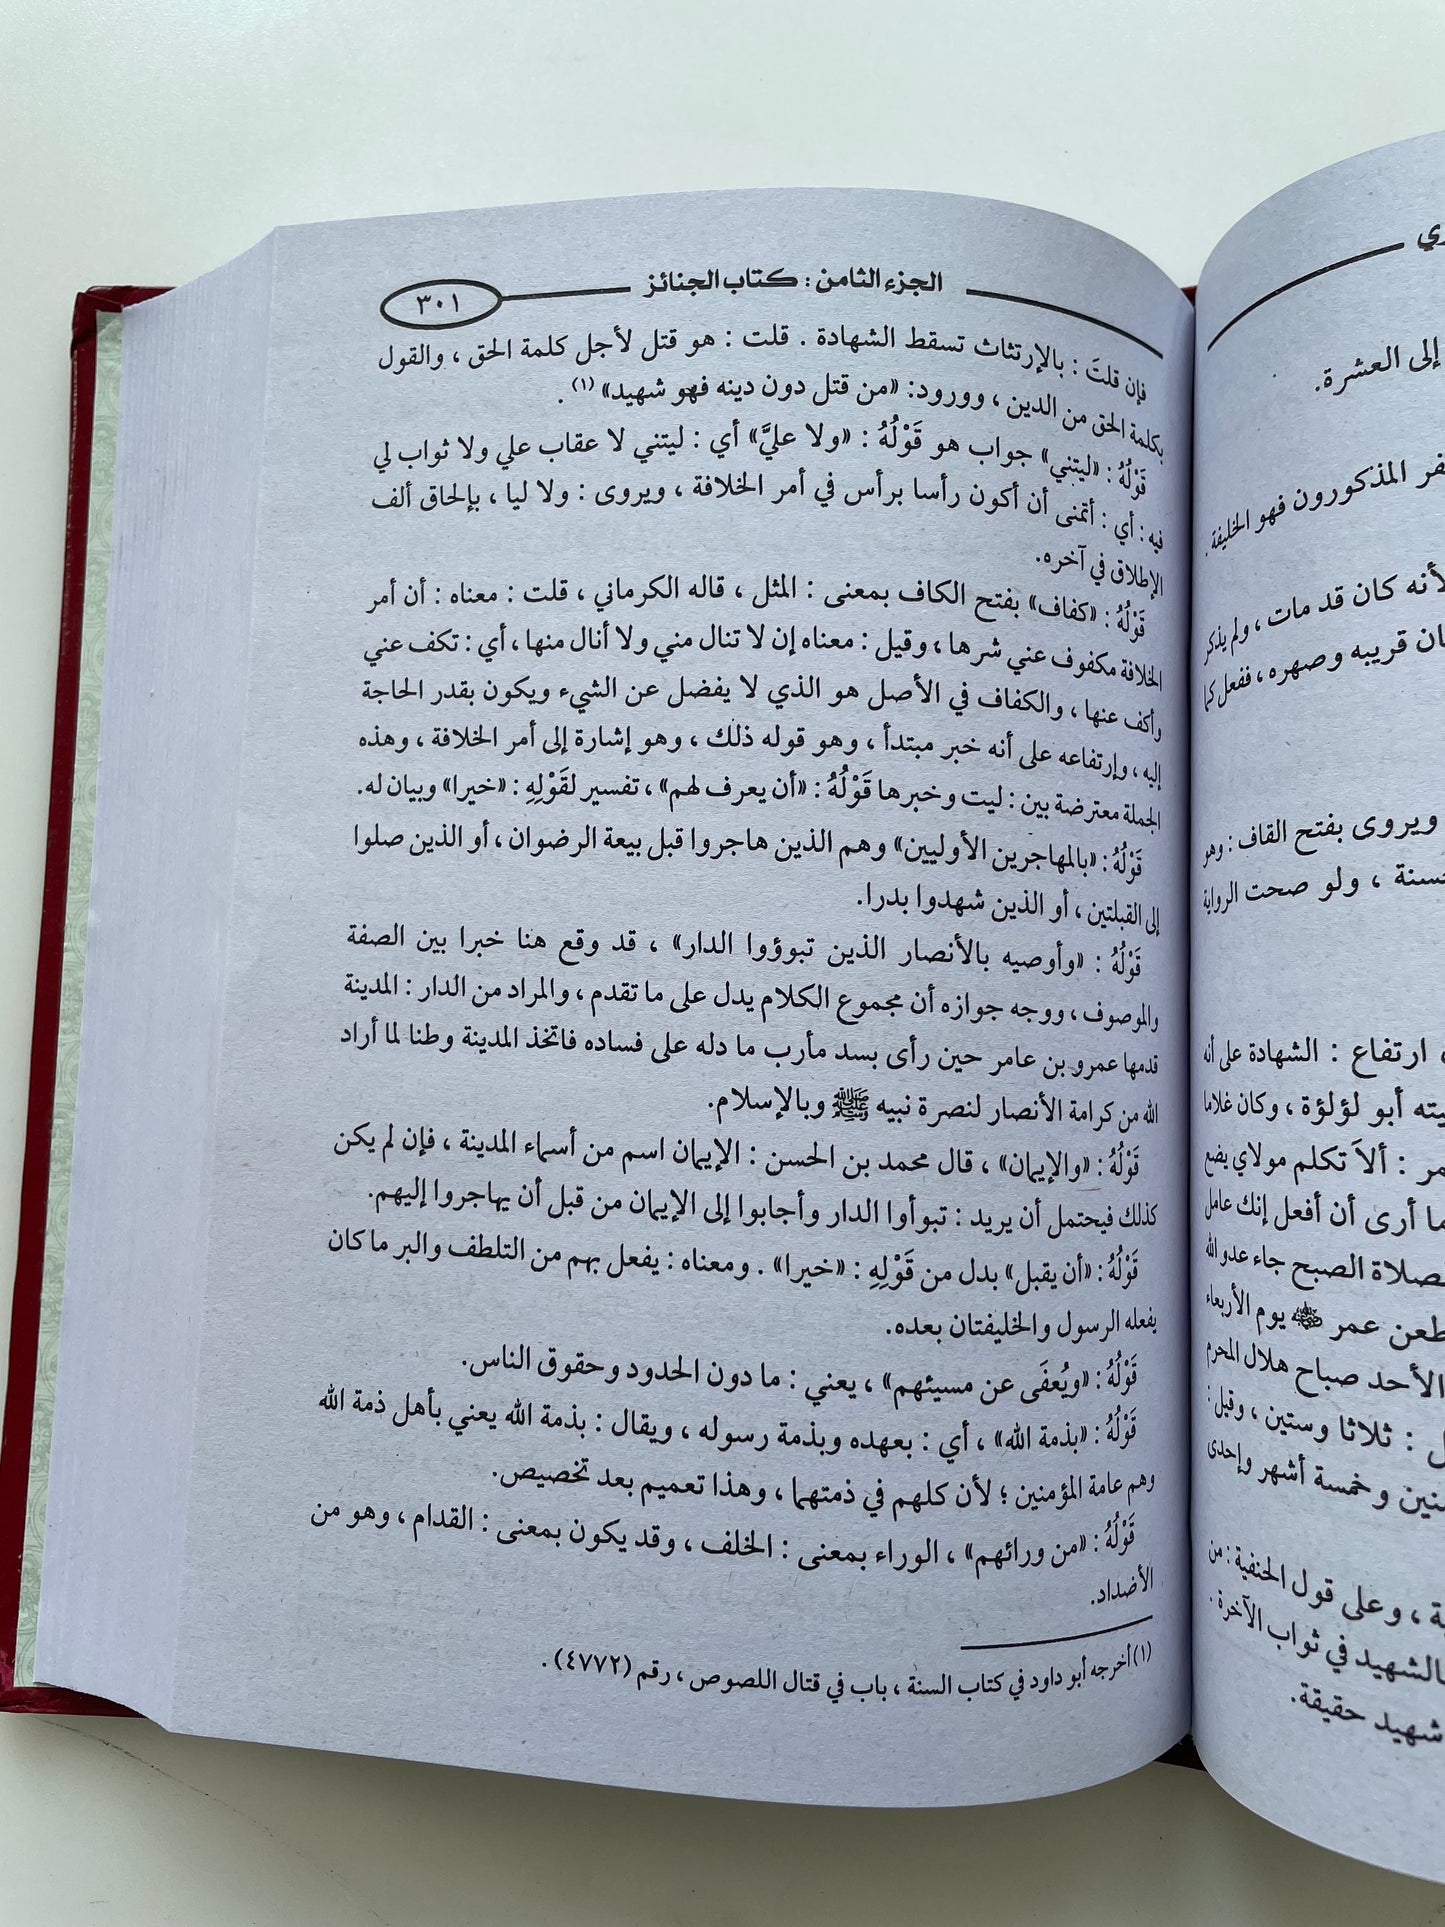 الجزء الثامن : كتاب الجنائز
٣٠١
فإن قلتَ : بالإرتثاث تسقط الشهادة . قلت : هو قتل لأجل كلمة الحق ، والقول
بكلمة الحق من الدين ، وورود: «من قتل دون دينه فهو شهيد» (١) .
قَوْلُهُ : «ليتني» جواب هو قَوْلُهُ : «ولا عليَّ» أي : ليتني لا عقاب علي ولا ثواب لي
فيه : أي : أتمنى أن أكون رأسا برأس في أمر الخلافة ، ويروى : ولا ليا ، بإلحاق ألف
الإطلاق في آخره.
قَوْلُهُ : «كفاف» بفتح الكاف بمعنى : المثل ، قاله الكرماني ، قلت : معناه : أن أمر
الخلافة مكفوف عني شرها ، وقيل : معناه إن لا تنال مني ولا أنال منها ، أي : تكف عني
وأكف عنها ، والكفاف في الأصل هو الذي لا يفضل عن الشيء ويكون بقدر الحاجة
إليه ، وإرتفاعه على أنه خبر مبتدأ ، وهو قوله ذلك ، وهو إشارة إلى أمر الخلافة ، وهذه
الجملة معترضة بين : ليت وخبرها قَوْلُهُ : «أن يعرف لهم» ، تفسير لقَوْلِهِ : «خيرا» وبيان له.
قَوْلُهُ : «بالمهاجرين الأوليين» وهم الذين هاجروا قبل بيعة الرضوان ، أو الذين صلوا
إلى القبلتين ، أو الذين شهدوا بدرا.
قَوْلُهُ : «وأوصيه بالأنصار الذين تبوؤوا الدار» ، قد وقع هنا خبرا بين الصفة
والموصوف ، ووجه جوازه أن مجموع الكلام يدل على ما تقدم ، والمراد من الدار : المدينة
قدمها عمرو بن عامر حين رأى بسد مأرب ما دله على فساده فاتخذ المدينة وطنا لما أراد
الله من كرامة الأنصار لنصرة نبيه ﷺ وبالإسلام.
قَوْلُهُ : «والإيمان» ، قال محمد بن الحسن : الإيمان اسم من أسماء المدينة ، فإن لم يكن
كذلك فيحتمل أن يريد : تبوأوا الدار وأجابوا إلى الإيمان من قبل أن يهاجروا إليهم.
قَوْلُهُ : «أن يقبل» بدل من قَوْلِهِ : «خيرا» . ومعناه : يفعل بهم من التلطف والبر ما كان
يفعله الرسول والخليفتان بعده.
قَوْلُهُ : «ويُعفَى عن مسيئهم» ، يعني : ما دون الحدود وحقوق الناس.
قَوْلُهُ : «بذمة الله» ، أي : بعهده وبذمة رسوله ، ويقال : بذمة الله يعني بأهل ذمة الله
وهم عامة المؤمنين ؛ لأن كلهم في ذمتهما ، وهذا تعميم بعد تخصيص.
قَوْلُهُ : «من ورائهم» ، الوراء بمعنى : الخلف ، وقد يكون بمعنى : القدام ، وهو من
الأضداد.
(١) أخرجه أبو داود في كتاب السنة ، باب في قتال اللصوص ، رقم (٤٧٧٢) .
إلى العشرة.
المذكورون فهو الخليفة .
لأنه كان قد مات ، ولم يذكر
قريبه وصهره ، ففعل كما
ويروى بفتح القاف : وهو
، ولو صحت الرواية
ارتفاع : الشهادة على أنه
أبو لؤلؤة ، وكان غلاما
: ألاَ تكلم مولاي يضع
ما أرى أن أفعل إنك عامل
الصبح جاء عدو الله
طعن عمر ﷺ يوم الأربعاء
الأحد صباح هلال المحرم
: ثلاثا وستين ، وقيل :
وخمسة أشهر وإحدى
، وعلى قول الحنفية : من
بالشهيد في ثواب الآخرة .
شهيد حقيقة.